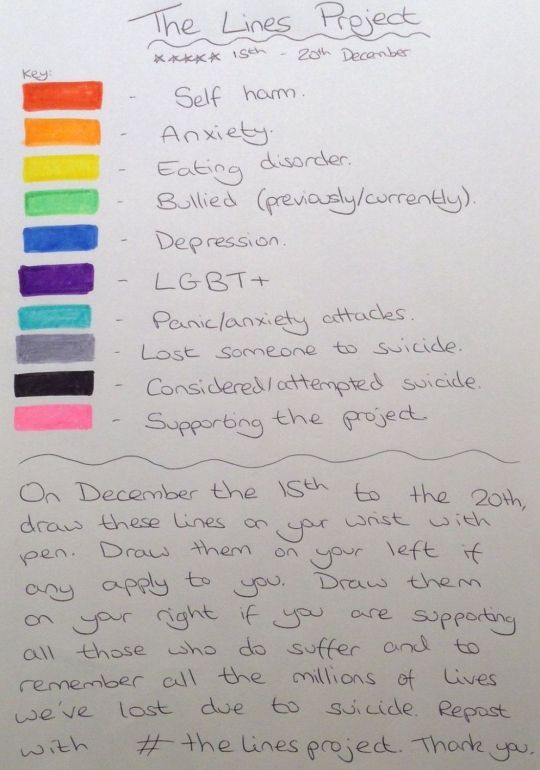 The Lines Project
***** 15th - 20th December
Key:
- Self harm.
- Anxiety.
- Eating disorder.
- Bullied (previously/currently).
- Depression.
- LGBT+
- Panic/anxiety attacks.
- Lost someone to suicide.
- Considered/attempted suicide.
- Supporting the project
On December the 15th to the 20th,
draw these lines on your wrist with
pen. Draw them on your left if
any apply to you. Draw them
on your right if you are supporting
all those who do suffer and to
remember all the millions of lives
we've lost due to suicide. Repost
with # the lines project. Thank you.